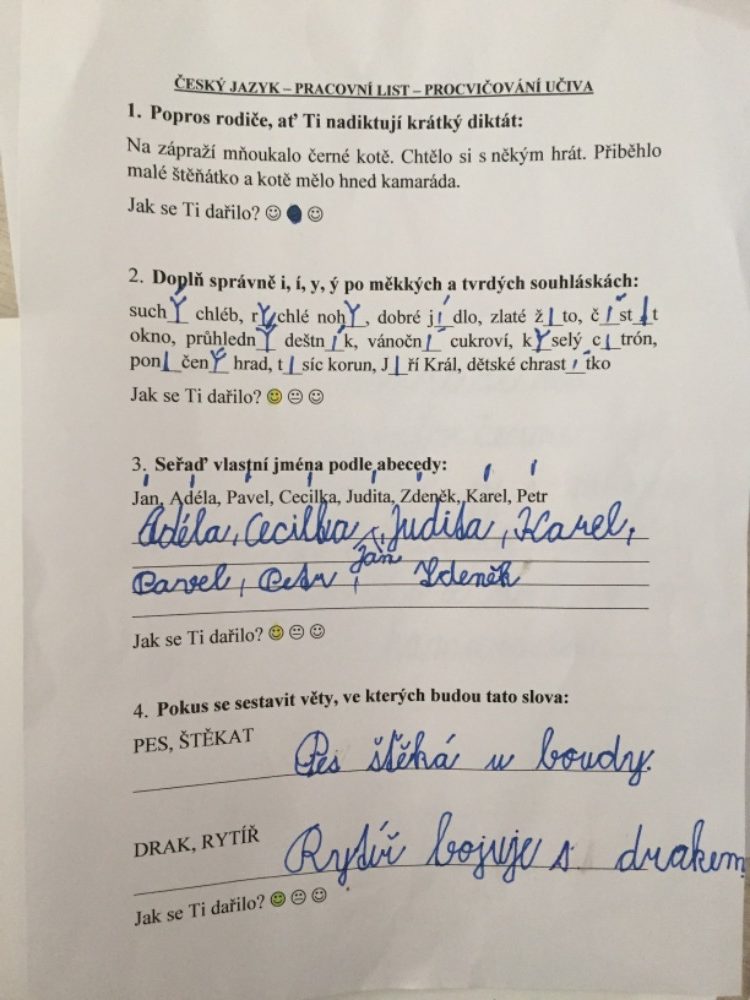 ČESKÝ JAZYK – PRACOVNÍ LIST – PROCVIČOVÁNÍ UČIVA
1. Popros rodiče, ať Ti nadiktují krátký diktát:
Na zápraží mňoukalo černé kotě. Chtělo si s někým hrát. Přiběhlo
malé štěňátko a kotě mělo hned kamaráda.
Jak se Ti dařilo? ☺ ● ☺
2. Doplň správně i, í, y, ý po měkkých a tvrdých souhláskách:
suchý chléb, rychlé nohy, dobré jídlo, zlaté žito, číst it
okno, průhledný deštník, vánoční cukroví, kyselý citrón,
poničený hrad, tisíc korun, Jiří Král, dětské chrastítko
Jak se Ti dařilo? ☺ 😐 ☺
3. Seřaď vlastní jména podle abecedy:
Jan, Adéla, Pavel, Cecilka, Judita, Zdeněk, Karel, Petr
Adéla, Cecilka, Judita, Karel,
Jan
Pavel, Petr, Zdeněk
Jak se Ti dařilo? ☺ 😐 ☺
4. Pokus se sestavit věty, ve kterých budou tato slova:
PES, ŠTĚKAT Pes štěká u boudy.
DRAK, RYTÍŘ Rytíř bojuje s drakem
Jak se Ti dařilo? ☺ 😐 ☺